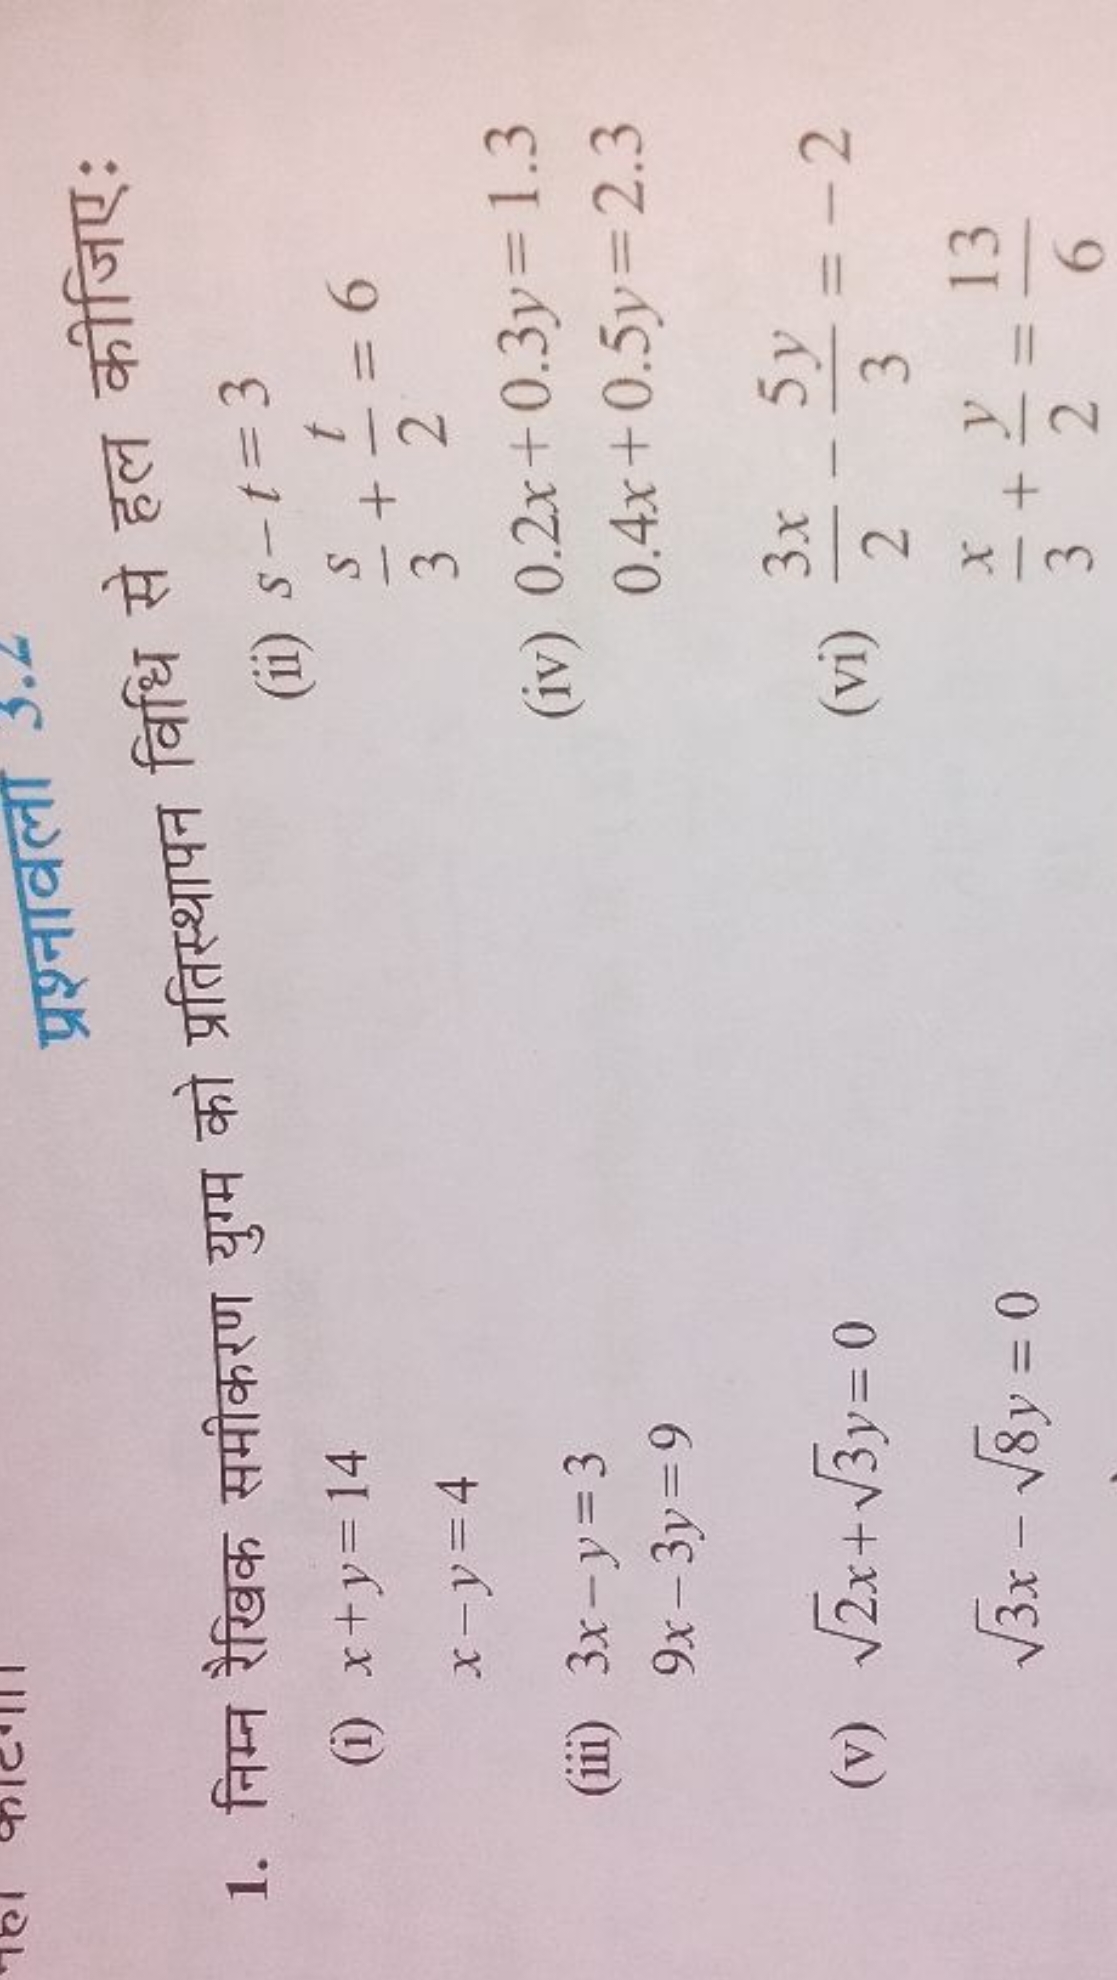 प्रश्नावली 3.2
1. निम्न रैखिक समीकरण युग्म को प्रतिस्थापन विधि से हल कीजिए:
(i) x + y = 14
x – y = 4
(ii) s – t = 3
s/3 + t/2 = 6
(iii) 3x – y = 3
9x – 3y = 9
(iv) 0.2x + 0.3y = 1.3
0.4x + 0.5y = 2.3
(v) √2x + √3y = 0
√3x – √8y = 0
(vi) 3x/2 – 5y/3 = – 2
x/3 + y/2 = 13/6